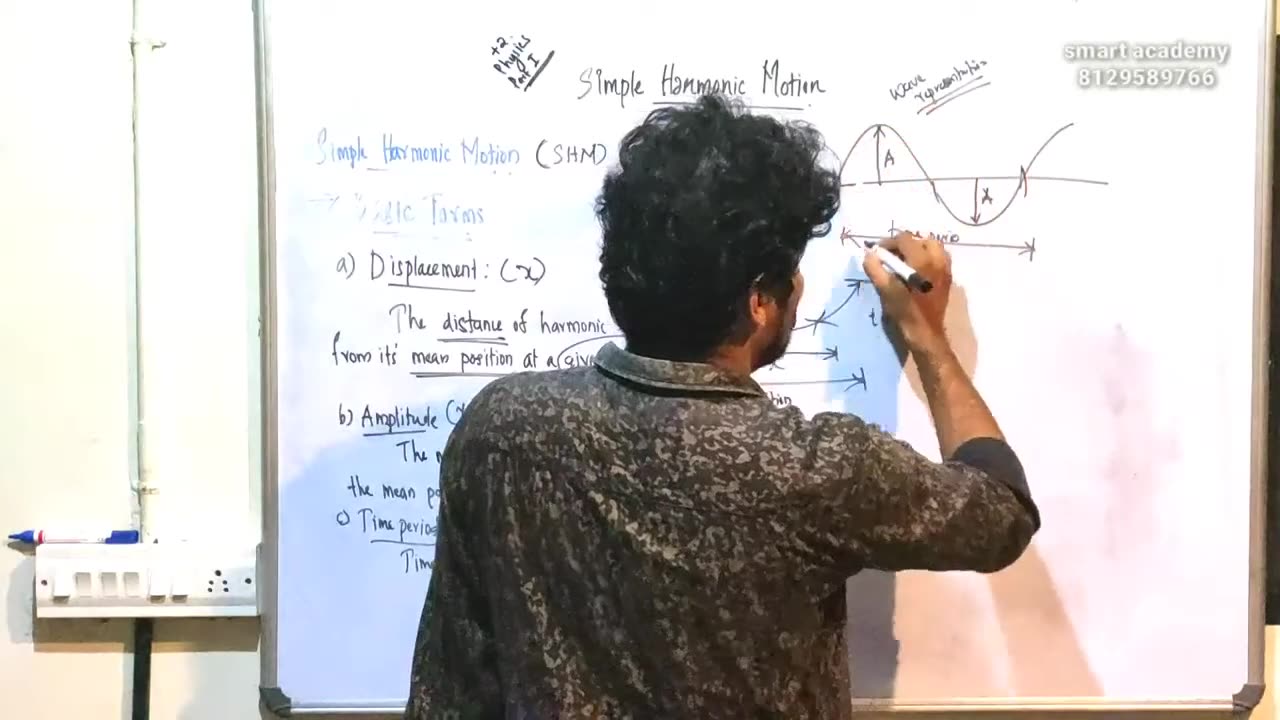 +2
Physics
Part I
Simple Harmonic Motion
smart academy
8129589766
Wave
representation
Simple Harmonic Motion (SHM)
→ Basic Terms
A
A
a) Displacement : (x)
The distance of harmonic
from it's mean position at a
b) Amplitude
The
the mean
c) Time